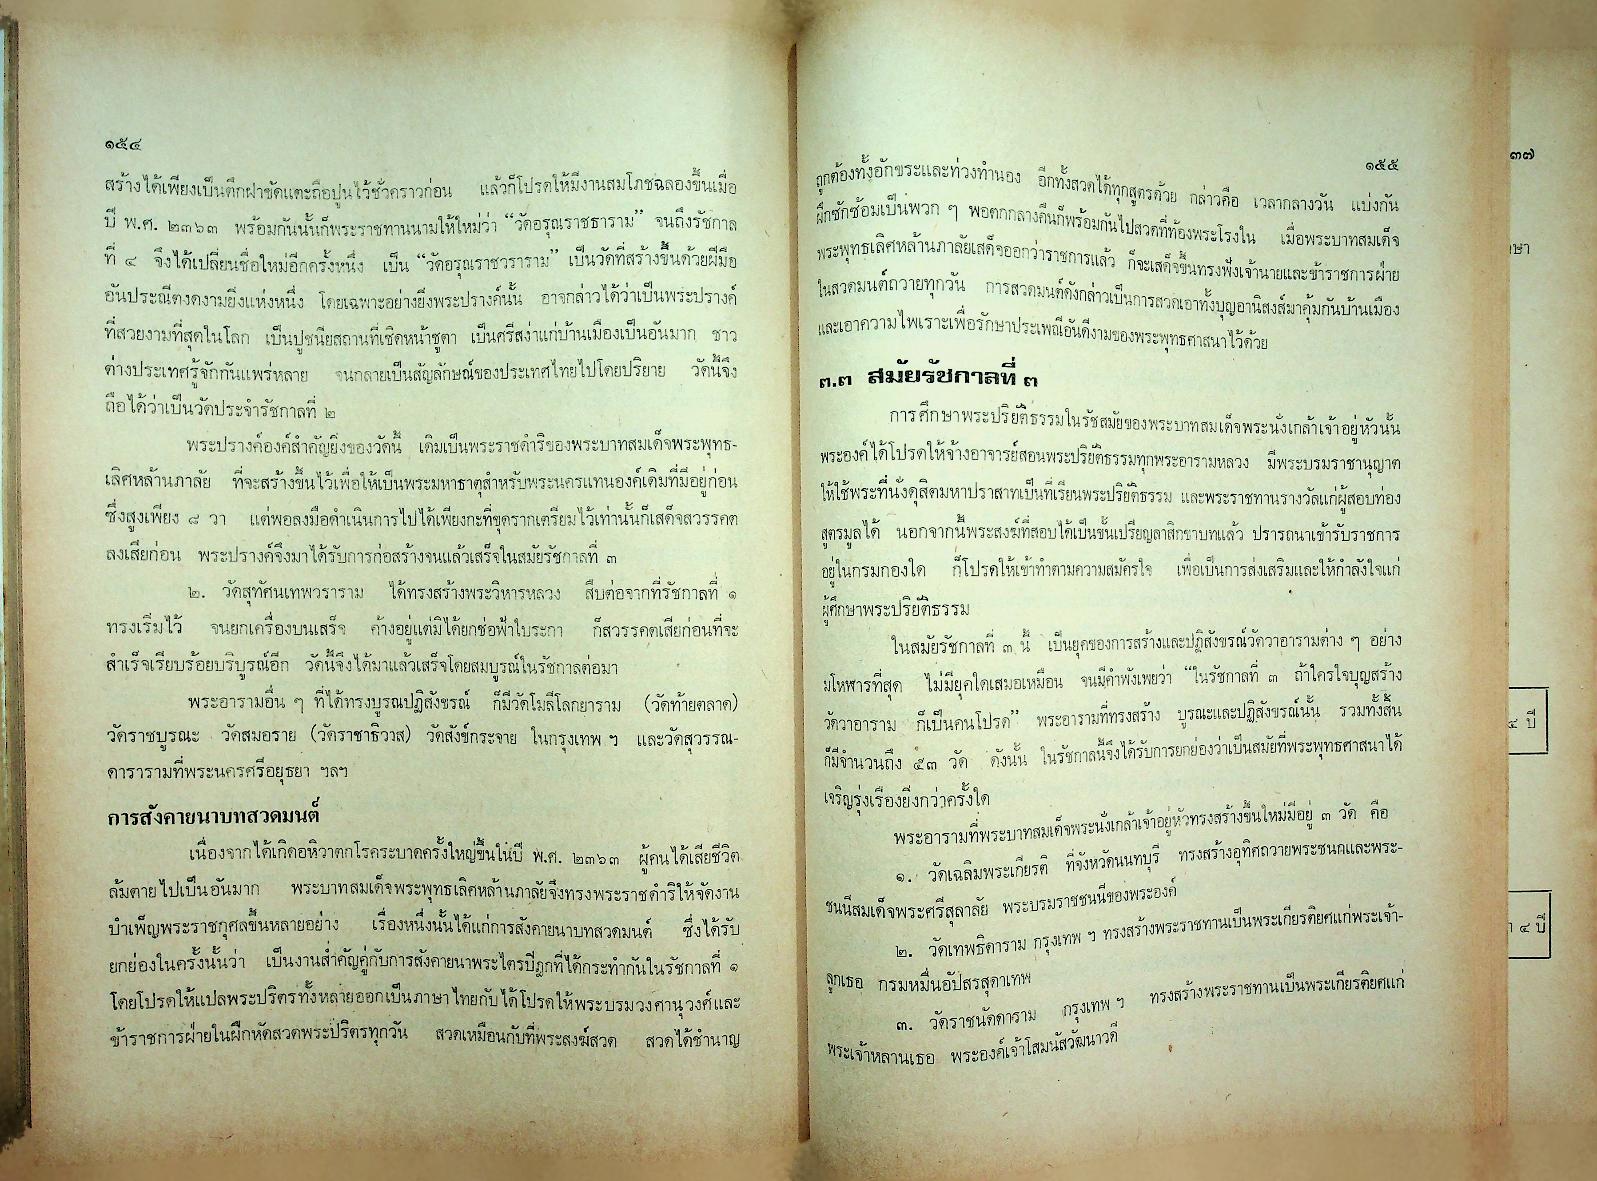 ๑๕๔
สร้างได้เพียงเป็นตึกฝาขัดแตะถือปูนไว้ชั่วคราวก่อน แล้วก็โปรดให้มีงานสมโภชฉลองขึ้นเมื่อ
ปี พ.ศ. ๒๓๖๓ พร้อมกันนั้นก็พระราชทานนามให้ใหม่ว่า “วัดอรุณราชธาราม” จนถึงรัชกาล
ที่ ๔ จึงได้เปลี่ยนชื่อใหม่อีกครั้งหนึ่ง เป็น “วัดอรุณราชวราราม” เป็นวัดที่สร้างขึ้นด้วยฝีมือ
อันประณีตงดงามยิ่งแห่งหนึ่ง โดยเฉพาะอย่างยิ่งพระปรางค์นั้น อาจกล่าวได้ว่าเป็นพระปรางค์
ที่สวยงามที่สุดในโลก เป็นปูชนียสถานที่เชิดหน้าชูตา เป็นศรีสง่าแก่บ้านเมืองเป็นอันมาก ชาว
ต่างประเทศรู้จักกันแพร่หลาย จนกลายเป็นสัญลักษณ์ของประเทศไทยไปโดยปริยาย วัดนี้จึง
ถือได้ว่าเป็นวัดประจำรัชกาลที่ ๒
พระปรางค์องค์สำคัญยิ่งของวัดนี้ เดิมเป็นพระราชดำริของพระบาทสมเด็จพระพุทธ-
เลิศหล้านภาลัย ที่จะสร้างขึ้นไว้เพื่อให้เป็นพระมหาธาตุสำหรับพระนครแทนองค์เดิมที่มีอยู่ก่อน
ซึ่งสูงเพียง ๘ วา แต่พอลงมือดำเนินการไปได้เพียงกะที่ขุดรากเตรียมไว้เท่านั้นก็เสด็จสวรรคต
ลงเสียก่อน พระปรางค์จึงมาได้รับการก่อสร้างจนแล้วเสร็จในสมัยรัชกาลที่ ๓
๒. วัดสุทัศนเทพวราราม ได้ทรงสร้างพระวิหารหลวง สืบต่อจากที่รัชกาลที่ ๑
ทรงเริ่มไว้ จนยกเครื่องบนเสร็จ ค้างอยู่แต่มิได้ยกช่อฟ้าใบระกา ก็สวรรคตเสียก่อนที่จะ
สำเร็จเรียบร้อยบริบูรณ์อีก วัดนี้จึงได้มาแล้วเสร็จโดยสมบูรณ์ในรัชกาลต่อมา
พระอารามอื่น ๆ ที่ได้ทรงบูรณปฏิสังขรณ์ ก็มีวัดโมลีโลกยาราม (วัดท้ายตลาด)
วัดราชบูรณะ วัดสมอราย (วัดราชาธิวาส) วัดสังข์กระจาย ในกรุงเทพ ฯ และวัดสุวรรณ-
ดารารามที่พระนครศรีอยุธยา ฯลฯ
การสังคายนาบทสวดมนต์
เนื่องจากได้เกิดอหิวาตกโรคระบาดครั้งใหญ่ขึ้นในปี พ.ศ. ๒๓๖๓ ผู้คนได้เสียชีวิต
ล้มตายไปเป็นอันมาก พระบาทสมเด็จพระพุทธเลิศหล้านภาลัยจึงทรงพระราชดำริให้จัดงาน
บำเพ็ญพระราชกุศลขึ้นหลายอย่าง เรื่องหนึ่งนั้นได้แก่การสังคายนาบทสวดมนต์ ซึ่งได้รับ
ยกย่องในครั้งนั้นว่า เป็นงานสำคัญคู่กับการสังคายนาพระไตรปิฎกที่ได้กระทำกันในรัชกาลที่ ๑
โดยโปรดให้แปลพระปริตรทั้งหลายออกเป็นภาษาไทยกับได้โปรดให้พระบรมวงศานุวงศ์และ
ข้าราชการฝ่ายในฝึกหัดสวดพระปริตรทุกวัน สวดเหมือนกับที่พระสงฆ์สวด สวดได้ชำนาญ
๑๕๕
ถูกต้องทั้งอักขระและท่วงทำนอง อีกทั้งสวดได้ทุกสูตรด้วย กล่าวคือ เวลากลางวัน แบ่งกัน
ฝึกซักซ้อมเป็นพวก ๆ พอตกกลางคืนก็พร้อมกันไปสวดที่ท้องพระโรงใน เมื่อพระบาทสมเด็จ
พระพุทธเลิศหล้านภาลัยเสด็จออกว่าราชการแล้ว ก็จะเสด็จขึ้นทรงฟังเจ้านายและข้าราชการฝ่าย
ในสวดมนต์ถวายทุกวัน การสวดมนต์ดังกล่าวเป็นการสวดเอาทั้งบุญอานิสงส์มาคุ้มกันบ้านเมือง
และเอาความไพเราะเพื่อรักษาประเพณีอันดีงามของพระพุทธศาสนาไว้ด้วย
๓.๓ สมัยรัชกาลที่ ๓
การศึกษาพระปริยัติธรรมในรัชสมัยของพระบาทสมเด็จพระนั่งเกล้าเจ้าอยู่หัวนั้น
พระองค์ได้โปรดให้จ้างอาจารย์สอนพระปริยัติธรรมทุกพระอารามหลวง มีพระบรมราชานุญาต
ให้ใช้พระที่นั่งดุสิตมหาปราสาทเป็นที่เรียนพระปริยัติธรรม และพระราชทานรางวัลแก่ผู้สอบท่อง
สูตรมูลได้ นอกจากนี้พระสงฆ์ที่สอบได้เป็นชั้นเปรียญลาสิกขาบทแล้ว ปรารถนาเข้ารับราชการ
อยู่ในกรมกองใด ก็โปรดให้เข้าทำตามความสมัครใจ เพื่อเป็นการส่งเสริมและให้กำลังใจแก่
ผู้ศึกษาพระปริยัติธรรม
ในสมัยรัชกาลที่ ๓ นี้ เป็นยุคของการสร้างและปฏิสังขรณ์วัดวาอารามต่าง ๆ อย่าง
มโหฬารที่สุด ไม่มียุคใดเสมอเหมือน จนมีคำพังเพยว่า “ในรัชกาลที่ ๓ ถ้าใครใจบุญสร้าง
วัดวาอาราม ก็เป็นคนโปรด” พระอารามที่ทรงสร้าง บูรณะและปฏิสังขรณ์นั้น รวมทั้งสิ้น
ก็มีจำนวนถึง ๕๓ วัด ดังนั้น ในรัชกาลนี้จึงได้รับการยกย่องว่าเป็นสมัยที่พระพุทธศาสนาได้
เจริญรุ่งเรืองยิ่งกว่าครั้งใด
พระอารามที่พระบาทสมเด็จพระนั่งเกล้าเจ้าอยู่หัวทรงสร้างขึ้นใหม่มีอยู่ ๓ วัด คือ
๑. วัดเฉลิมพระเกียรติ ที่จังหวัดนนทบุรี ทรงสร้างอุทิศถวายพระชนกและพระ-
ชนนีสมเด็จพระศรีสุลาลัย พระบรมราชชนนีของพระองค์
๒. วัดเทพธิดาราม กรุงเทพ ฯ ทรงสร้างพระราชทานเป็นพระเกียรติยศแก่พระเจ้า-
ลูกเธอ กรมหมื่นอัปสรสุดาเทพ
๓. วัดราชนัดดาราม กรุงเทพ ฯ ทรงสร้างพระราชทานเป็นพระเกียรติยศแก่
พระเจ้าหลานเธอ พระองค์เจ้าโสมนัสวัฒนาวดี
๓๗
๔ ปี
๔ ปี